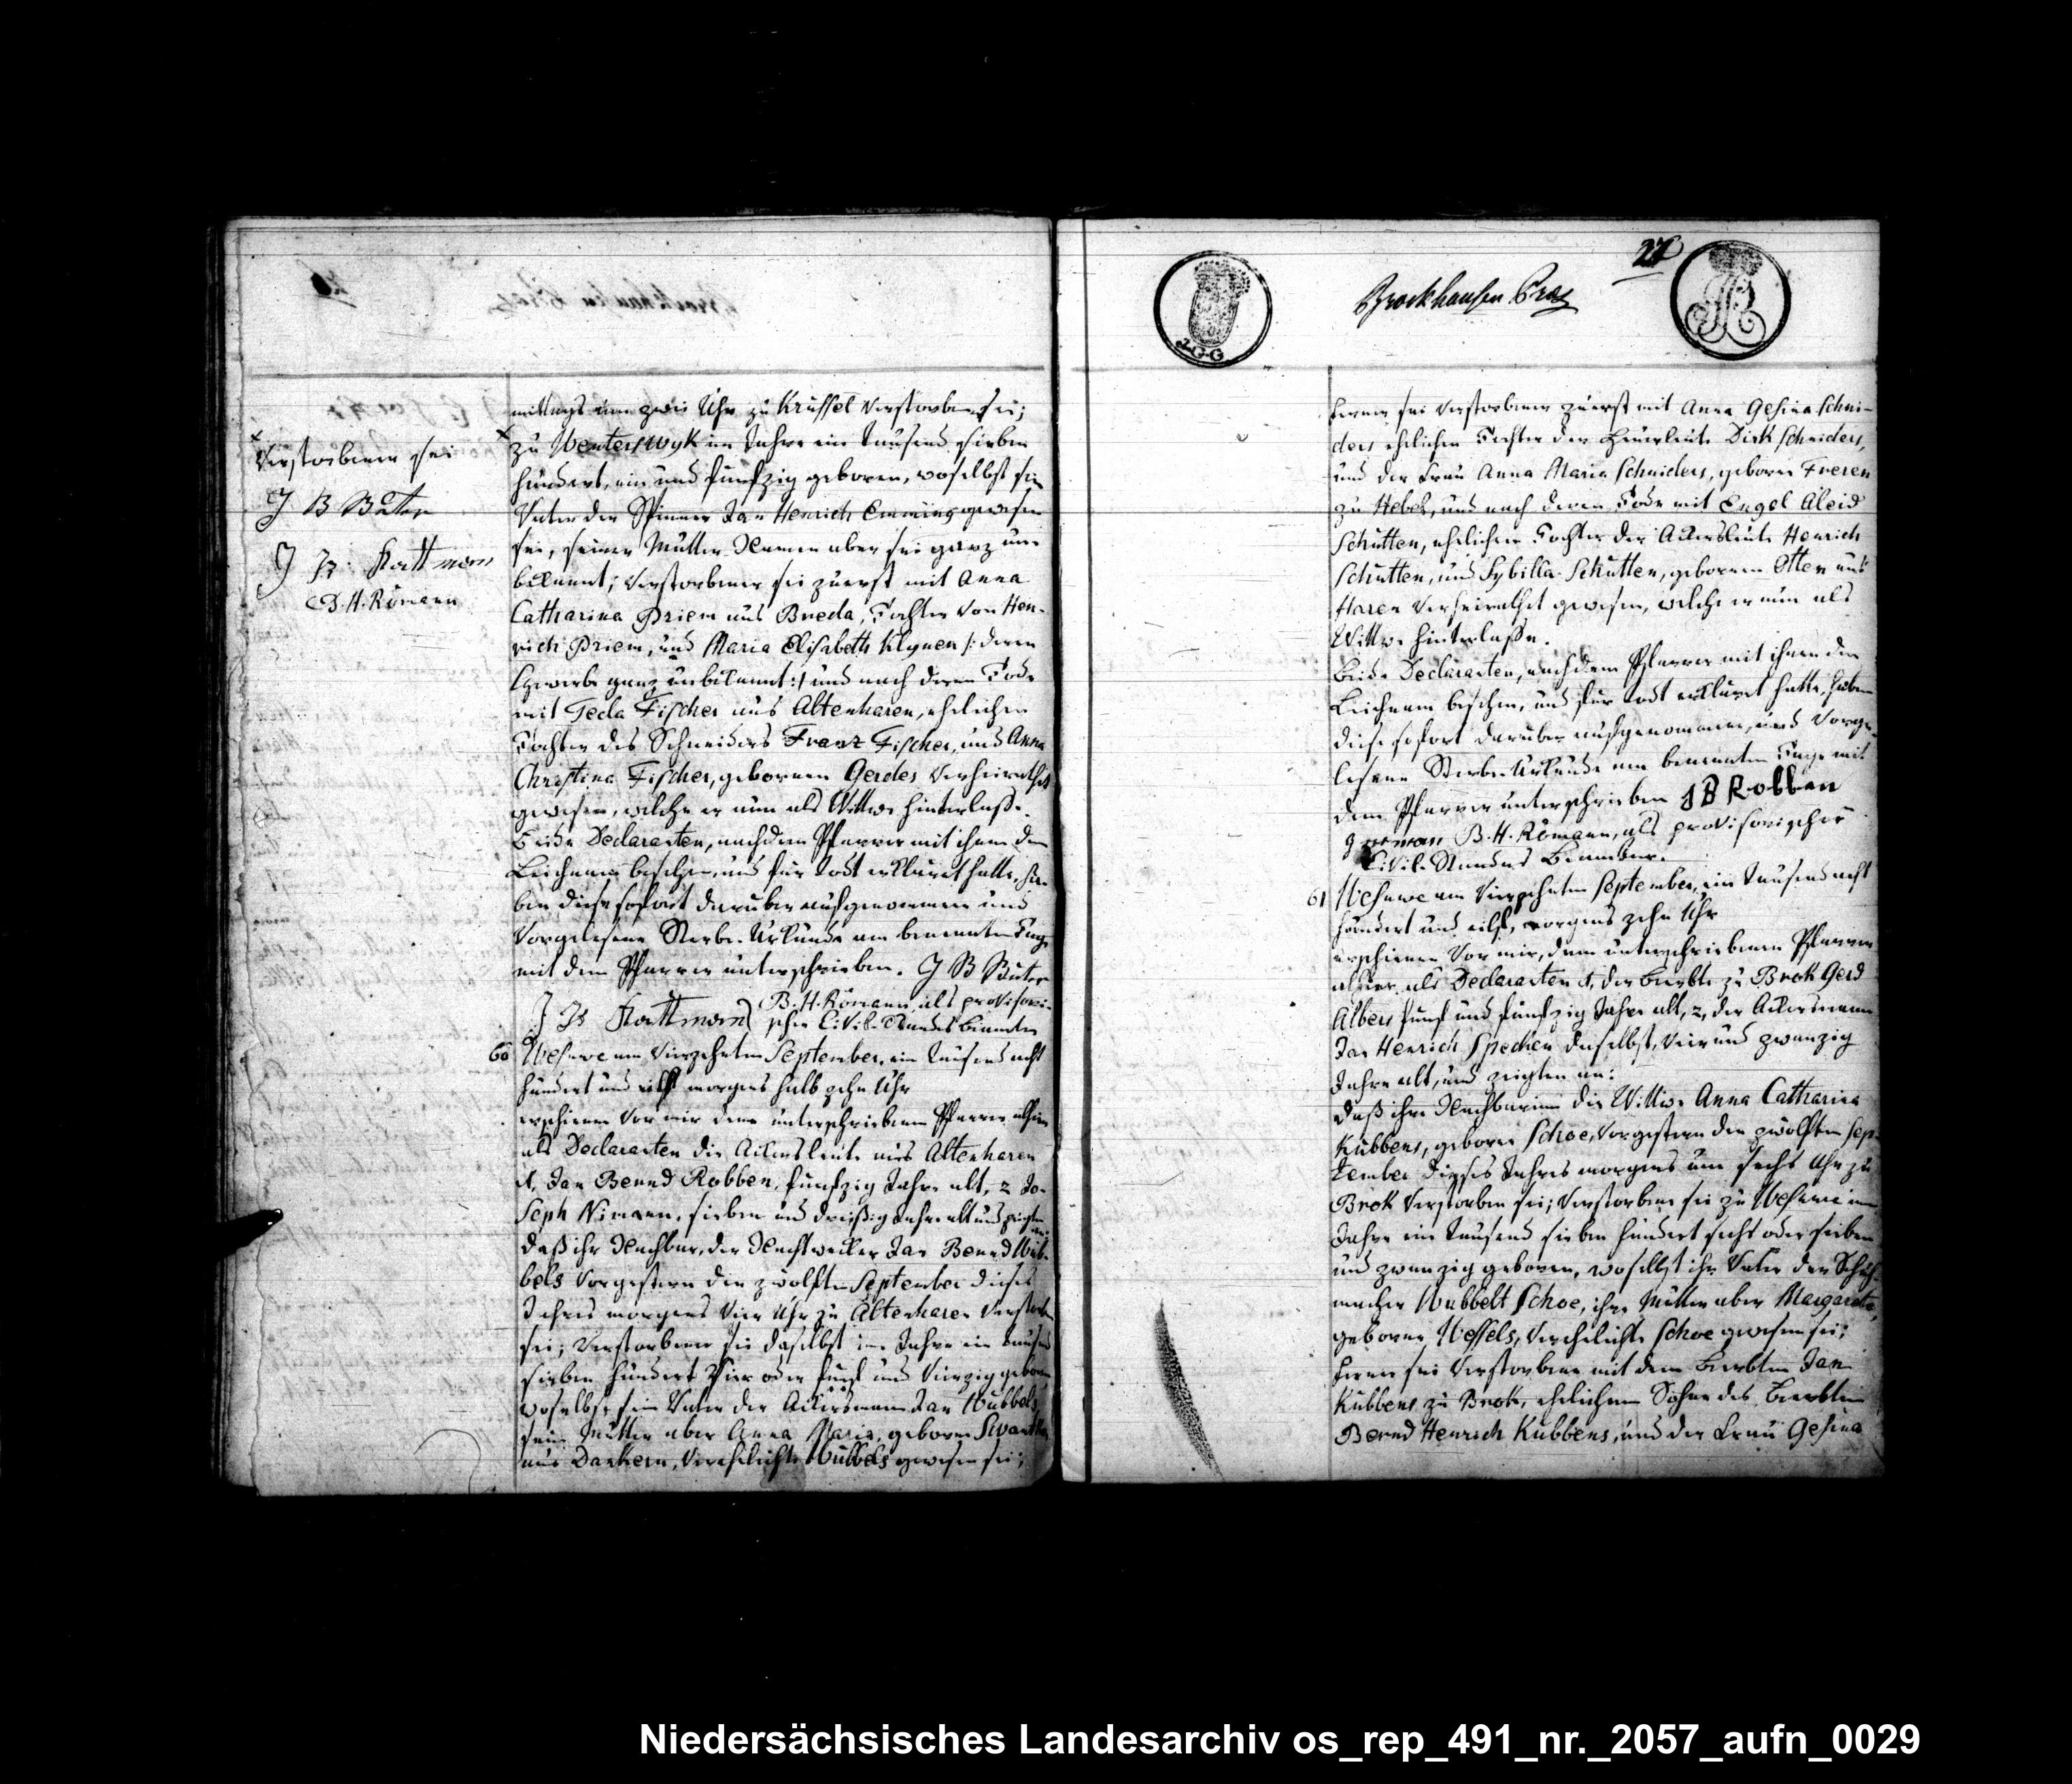 Verstorbener sei
J B Büter
J B Kattmann
B. H. Römann
mittags um zwei Uhr zu Krüssel Verstorben sei;
zu Wenterswyk im Jahre ein Tausend sieben
hundert, ein und fünfzig geboren, woselbst sein
Vater der Spinner Jan Henrich Emming gewesen
sei, seiner Mutter Namen aber sei ganz un-
bekannt; Verstorbener sei zuerst mit Anna
Catharina Priem aus Breda, Tochter von Hen-
rich Priem, und Maria Elisabeth Klynen /: deren
Gewerbe ganz unbekannt :/ und nach deren Tode
mit Tecla Fischer aus Altenharen, ehelichen
Tochter des Schneiders Franz Fischer, und Anna
Christina Fischer, gebornen Gerdes Verheirathet
gewesen, welche er nun als Wittwe hinterlasse.
Beide Declaranten, nachdem Pfarrer mit ihnen den
Leichnam besehen, und für todt erklärt hatte, ha-
ben diese sofort darüber aufgenommene und
Vorgelesene Sterbe-Urkunde am benannten Tage
mit dem Pfarrer unterschrieben. J B Büter
J B Kattmann B. H. Römann als provisori-
scher Civil-Standes Beamter
60 Wesuwe am Vierzehnten September, ein Tausend acht
hundert und eilf morgens halb zehn Uhr
erschienen Vor mir dem unterschriebenen Pfarrer alhier
als Declaranten die Ackersleute aus Altenharen
1, Jan Bernd Robben, fünfzig Jahre alt, 2 Jo-
seph Nimann, sieben und dreißig Jahre alt und zeigten an:
daß ihr Nachbar, der Nachtwecker Jan Bernd Wüb-
bels Vorgestern den zwölften September dieses
Jahres morgens Vier Uhr zu Altenharen Verstorben
sei; Verstorbener sei daselbst im Jahre ein Tausend
sieben hundert Vier oder fünf und Vierzig geboren
woselbst sein Vater der Ackersmann Jan Wübbels,
seine Mutter aber Anna Maria, geborne
aus Dankern, Verehelichte Wübbels gewesen sei;
27
Brockhausen
J-G-G
ferner sei Verstorbener zuerst mit Anna Gesina Schni-
ders ehelichen Tochter der Heuerleute Dirk Schniders,
und der Frau Anna Maria Schniders, geborne Freren
zu Hebel, und nach deren Tode mit Engel Aleid
Schutten, ehelichen Tochter der Ackersleute Henrich
Schutten, und Sybilla Schutten, gebornen Otten aus
Haren Verheirathet gewesen, welche er nun als
Wittwe hinterlasse.
Beide Declaranten, nachdem Pfarrer mit ihnen den
Leichnam besehen, und für todt erklärt hatte, haben
diese sofort darüber aufgenommene, und Vorge-
lesene Sterbe-Urkunde am benannten Tage mit
dem Pfarrer unterschrieben J B Robben
B. H. Römann, als provisorischer
Civil-Standes Beamter.
61 Wesuwe am Vierzehnten September, ein Tausend acht
hundert und eilf, morgens zehn Uhr
erschienen Vor mir, dem unterschriebenen Pfarrer
alhier als Declaranten 1, der Beerbte zu Brok Gerd
Albers fünf und fünfzig Jahre alt, 2, der Ackersmann
Jan Henrich Specken daselbst, Vier und zwanzig
Jahre alt, und zeigten an:
daß ihre Nachbarinn die Wittwe Anna Catharina
Kübbens, geborne Schoe, Vorgestern den zwölften Sep-
tember dieses Jahres morgens um sechs Uhr zu
Brok Verstorben sei; Verstorbene sei zu Wesuwe im
Jahre ein Tausend sieben hundert sechs oder sieben
und zwanzig geboren, woselbst ihr Vater der Schuh-
macher Wubbelt Schoe, ihre Mutter aber Margaretha,
geborne Wessels, Verehelichte Schoe gewesen sei;
ferner sei Verstorbene mit dem Beerbten Jan
Kübbens zu Brok, ehelichem Sohne des Beerbten
Bernd Henrich Kübbens, und der Frau Gesina
Niedersächsisches Landesarchiv os_rep_491_nr._2057_aufn_0029